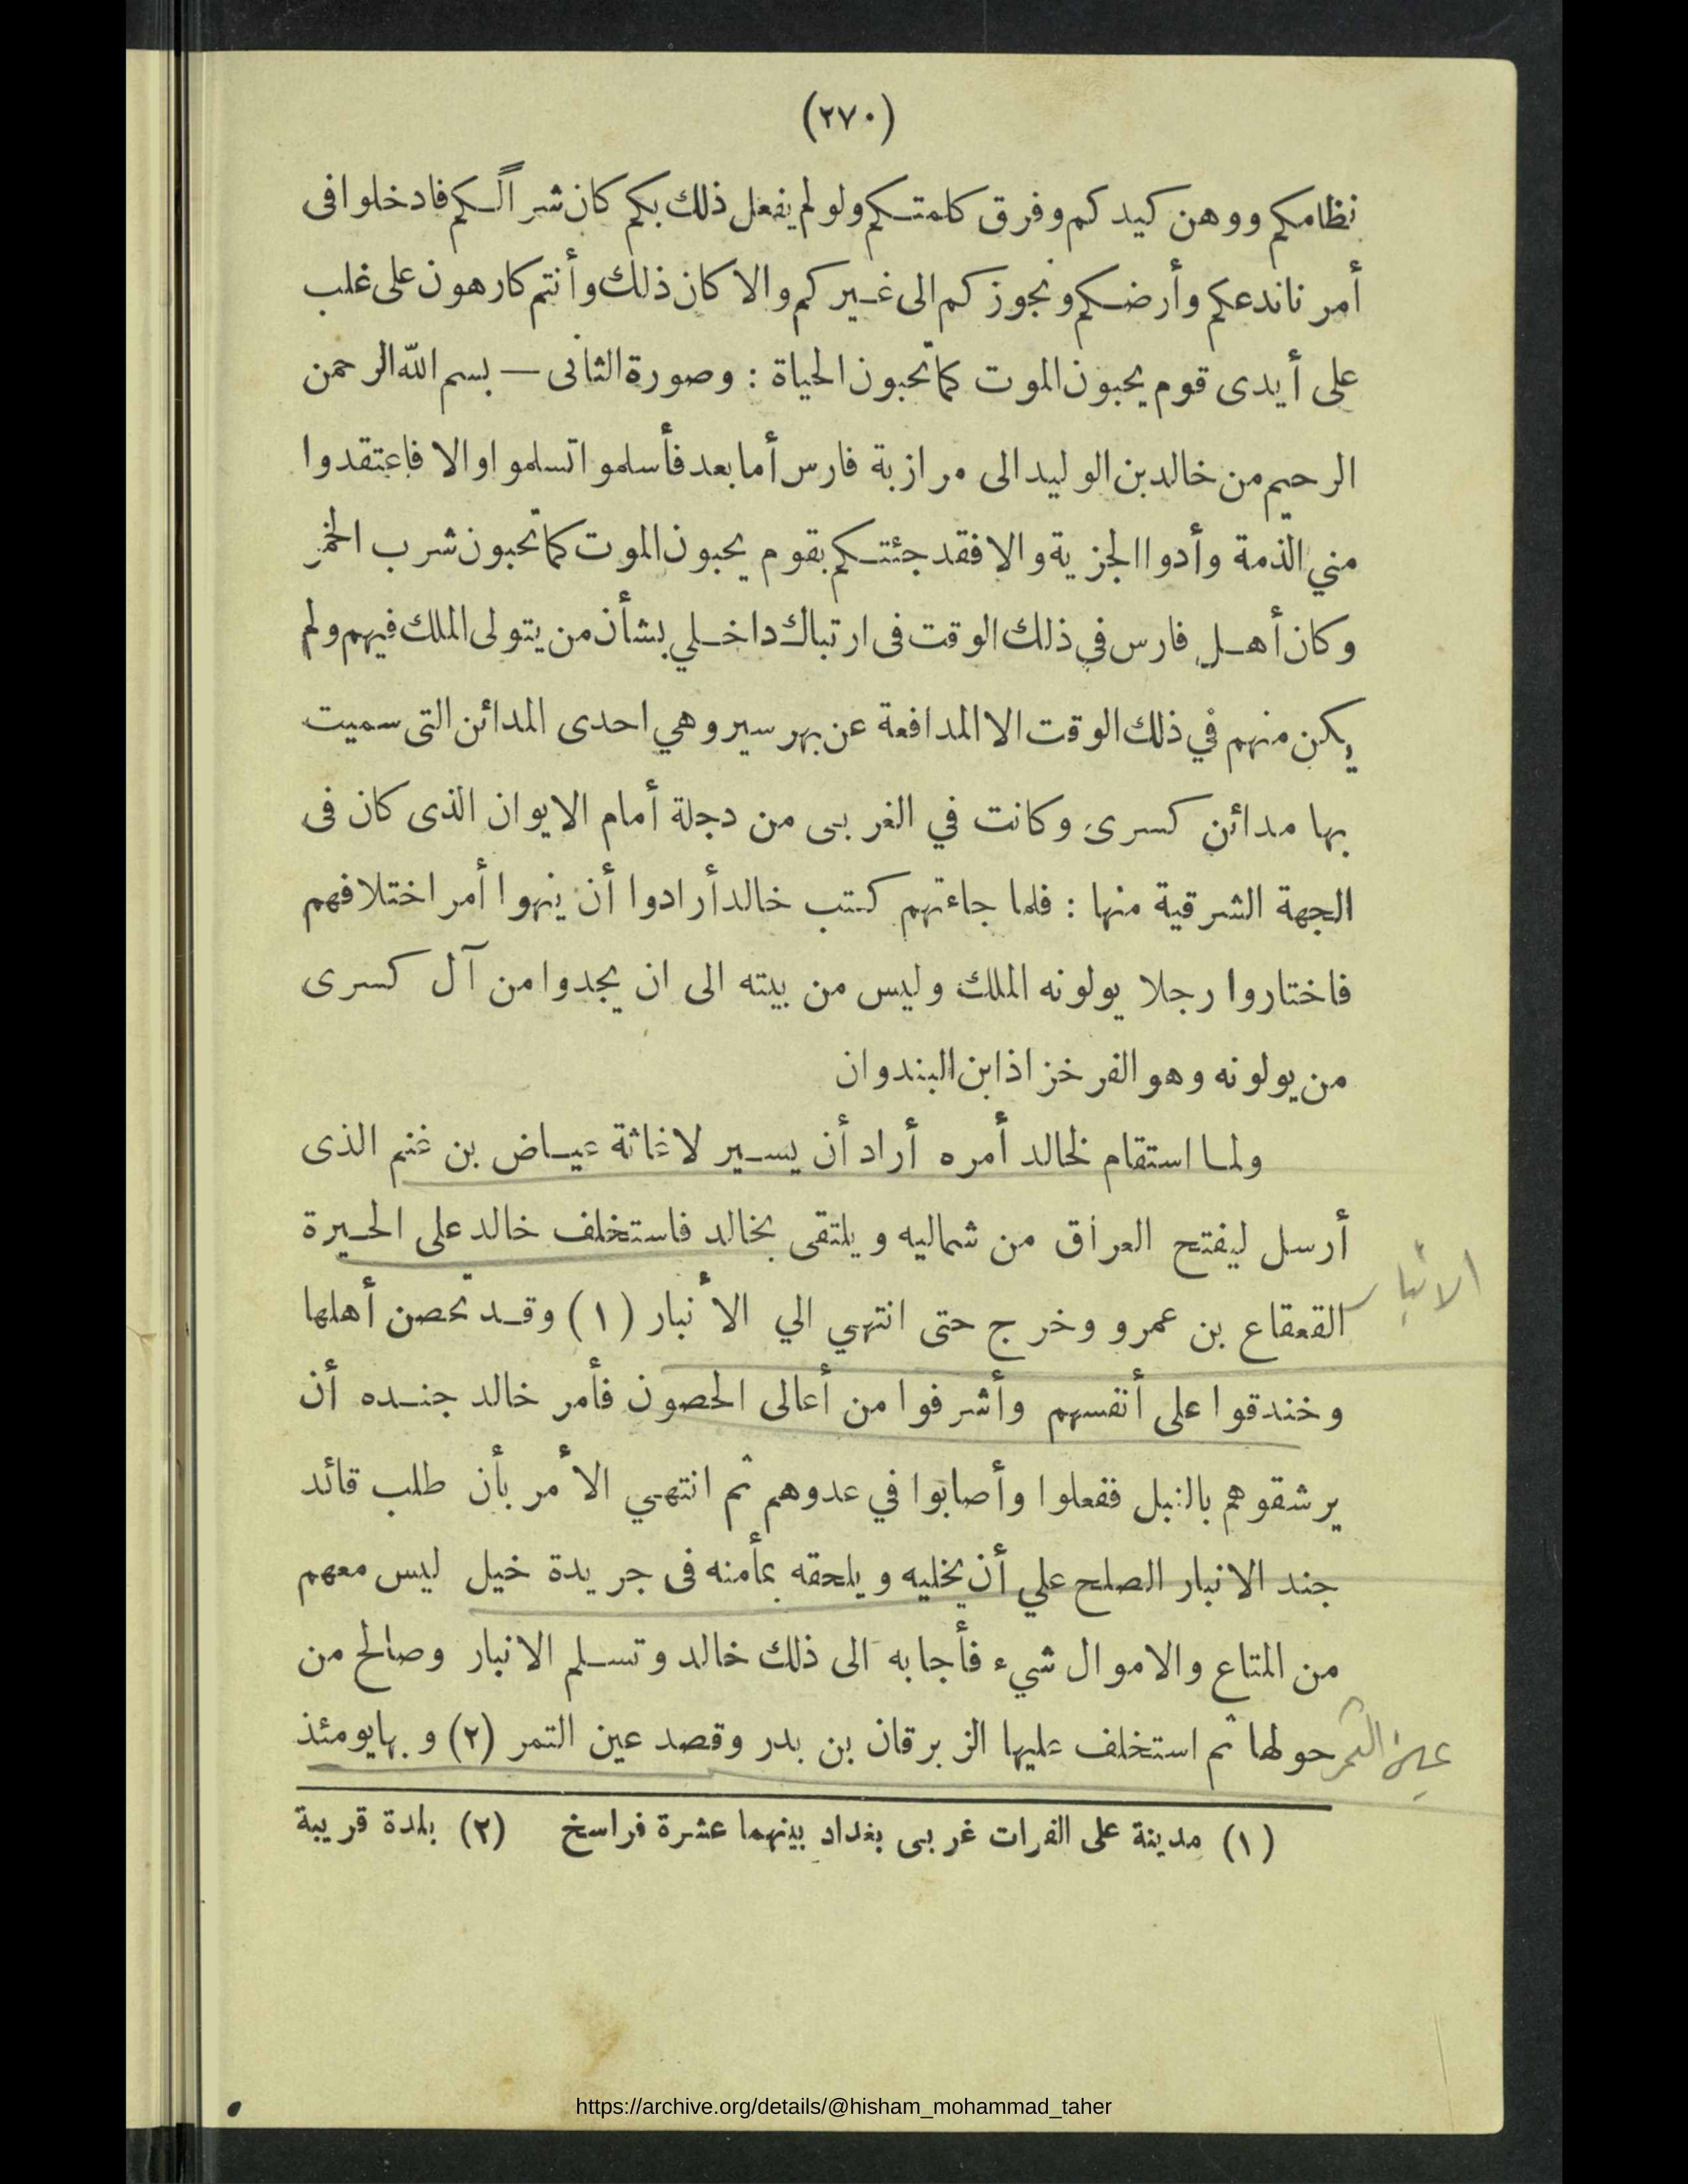 (٢٧٠)
نظامكم ووهن كيدكم وفرق كلمتكم ولو لم يفعل ذلك بكم كان شراً لكم فادخلوا فى
أمرنا ندعكم وأرضكم ونجوزكم الى غيركم والا كان ذلك وأنتم كارهون على غلب
على أيدى قوم يحبون الموت كما تحبون الحياة : وصورة الثانى — بسم الله الرحمن
الرحيم من خالد بن الوليد الى مرازبة فارس أما بعد فأسلموا تسلموا والا فاعتقدوا
مني الذمة وأدوا الجزية والا فقد جئتكم بقوم يحبون الموت كما تحبون شرب الخمر
وكان أهل فارس في ذلك الوقت فى ارتباك داخلي بشأن من يتولى الملك فيهم ولم
يكن منهم في ذلك الوقت الا المدافعة عن بهرسير وهي احدى المدائن التى سميت
بها مدائن كسرى وكانت في الغربى من دجلة أمام الايوان الذى كان فى
الجهة الشرقية منها : فلما جاءتهم كتب خالد أرادوا أن ينهوا أمر اختلافهم
فاختاروا رجلا يولونه الملك وليس من بيته الى ان يجدوا من آل كسرى
من يولونه وهو الفرخزاذ ابن البندوان
ولما استقام لخالد أمره أراد أن يسير لاغاثة عياض بن غنم الذى
أرسل ليفتح العراق من شماليه ويلتقى بخالد فاستخلف خالد على الحيرة
الانبار
القعقاع بن عمرو وخرج حتى انتهي الي الأنبار (١) وقد تحصن أهلها
وخندقوا على أنفسهم وأشرفوا من أعالى الحصون فأمر خالد جنده أن
يرشقوهم بالنبل ففعلوا وأصابوا في عدوهم ثم انتهي الأمر بأن طلب قائد
جند الانبار الصلح علي أن يخليه ويلحقه بمأمنه فى جريدة خيل ليس معهم
من المتاع والاموال شيء فأجابه الى ذلك خالد وتسلم الانبار وصالح من
عين التمر
حولها ثم استخلف عليها الزبرقان بن بدر وقصد عين التمر (٢) وبها يومئذ
(١) مدينة على الفرات غربى بغداد بينهما عشرة فراسخ (٢) بلدة قريبة
https://archive.org/details/@hisham_mohammad_taher